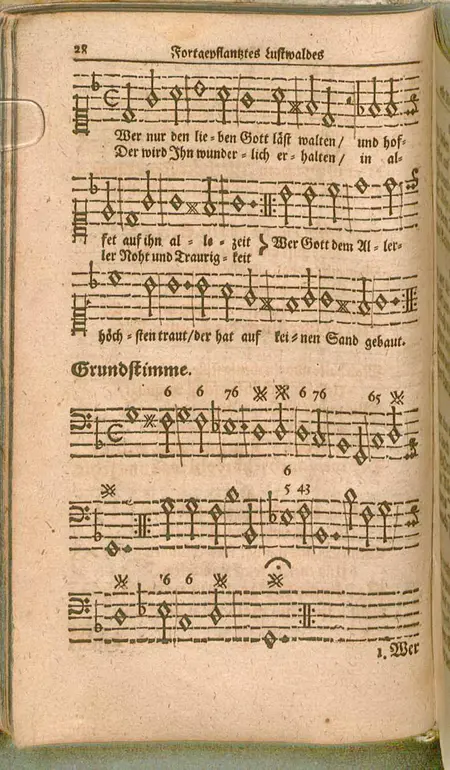 28
Fortgepflantztes Lustwaldes
Wer nur den lie-ben Gott läst walten/ und hof-
Der wird Jhn wunder-lich er-halten/ in al-
fet auf ihn al-le-zeit } Wer Gott dem Al-ler-
ler Noht und Traurig-keit
höch-sten traut/der hat auf kei-nen Sand gebaut.
Grundstimme.
6 6 76 6 76 65
6
5 43
6 6
1. Wer